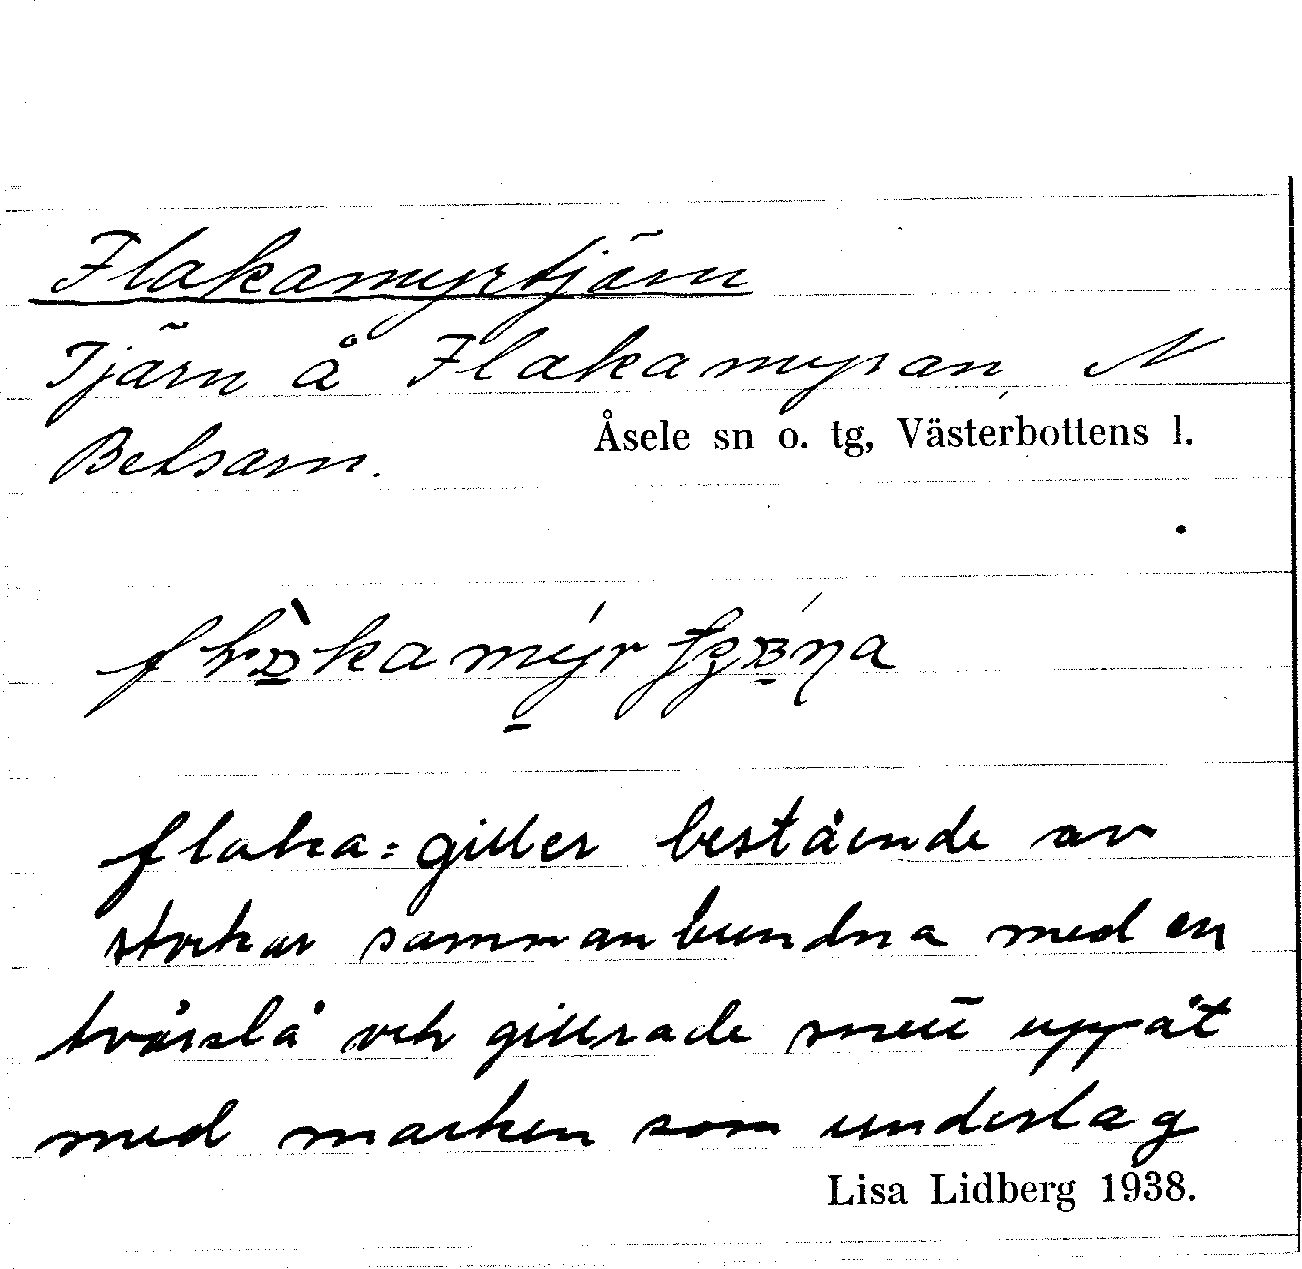 Flakamyrtjärn
Tjärn å Flakamyran, N
Betsarn.
Åsele sn o. tg, Västerbottens l.
flaka = giller bestående av
stockar sammanbundna med en
tvärslå och gillrade snett uppåt
med marken som underlag
Lisa Lidberg 1938.